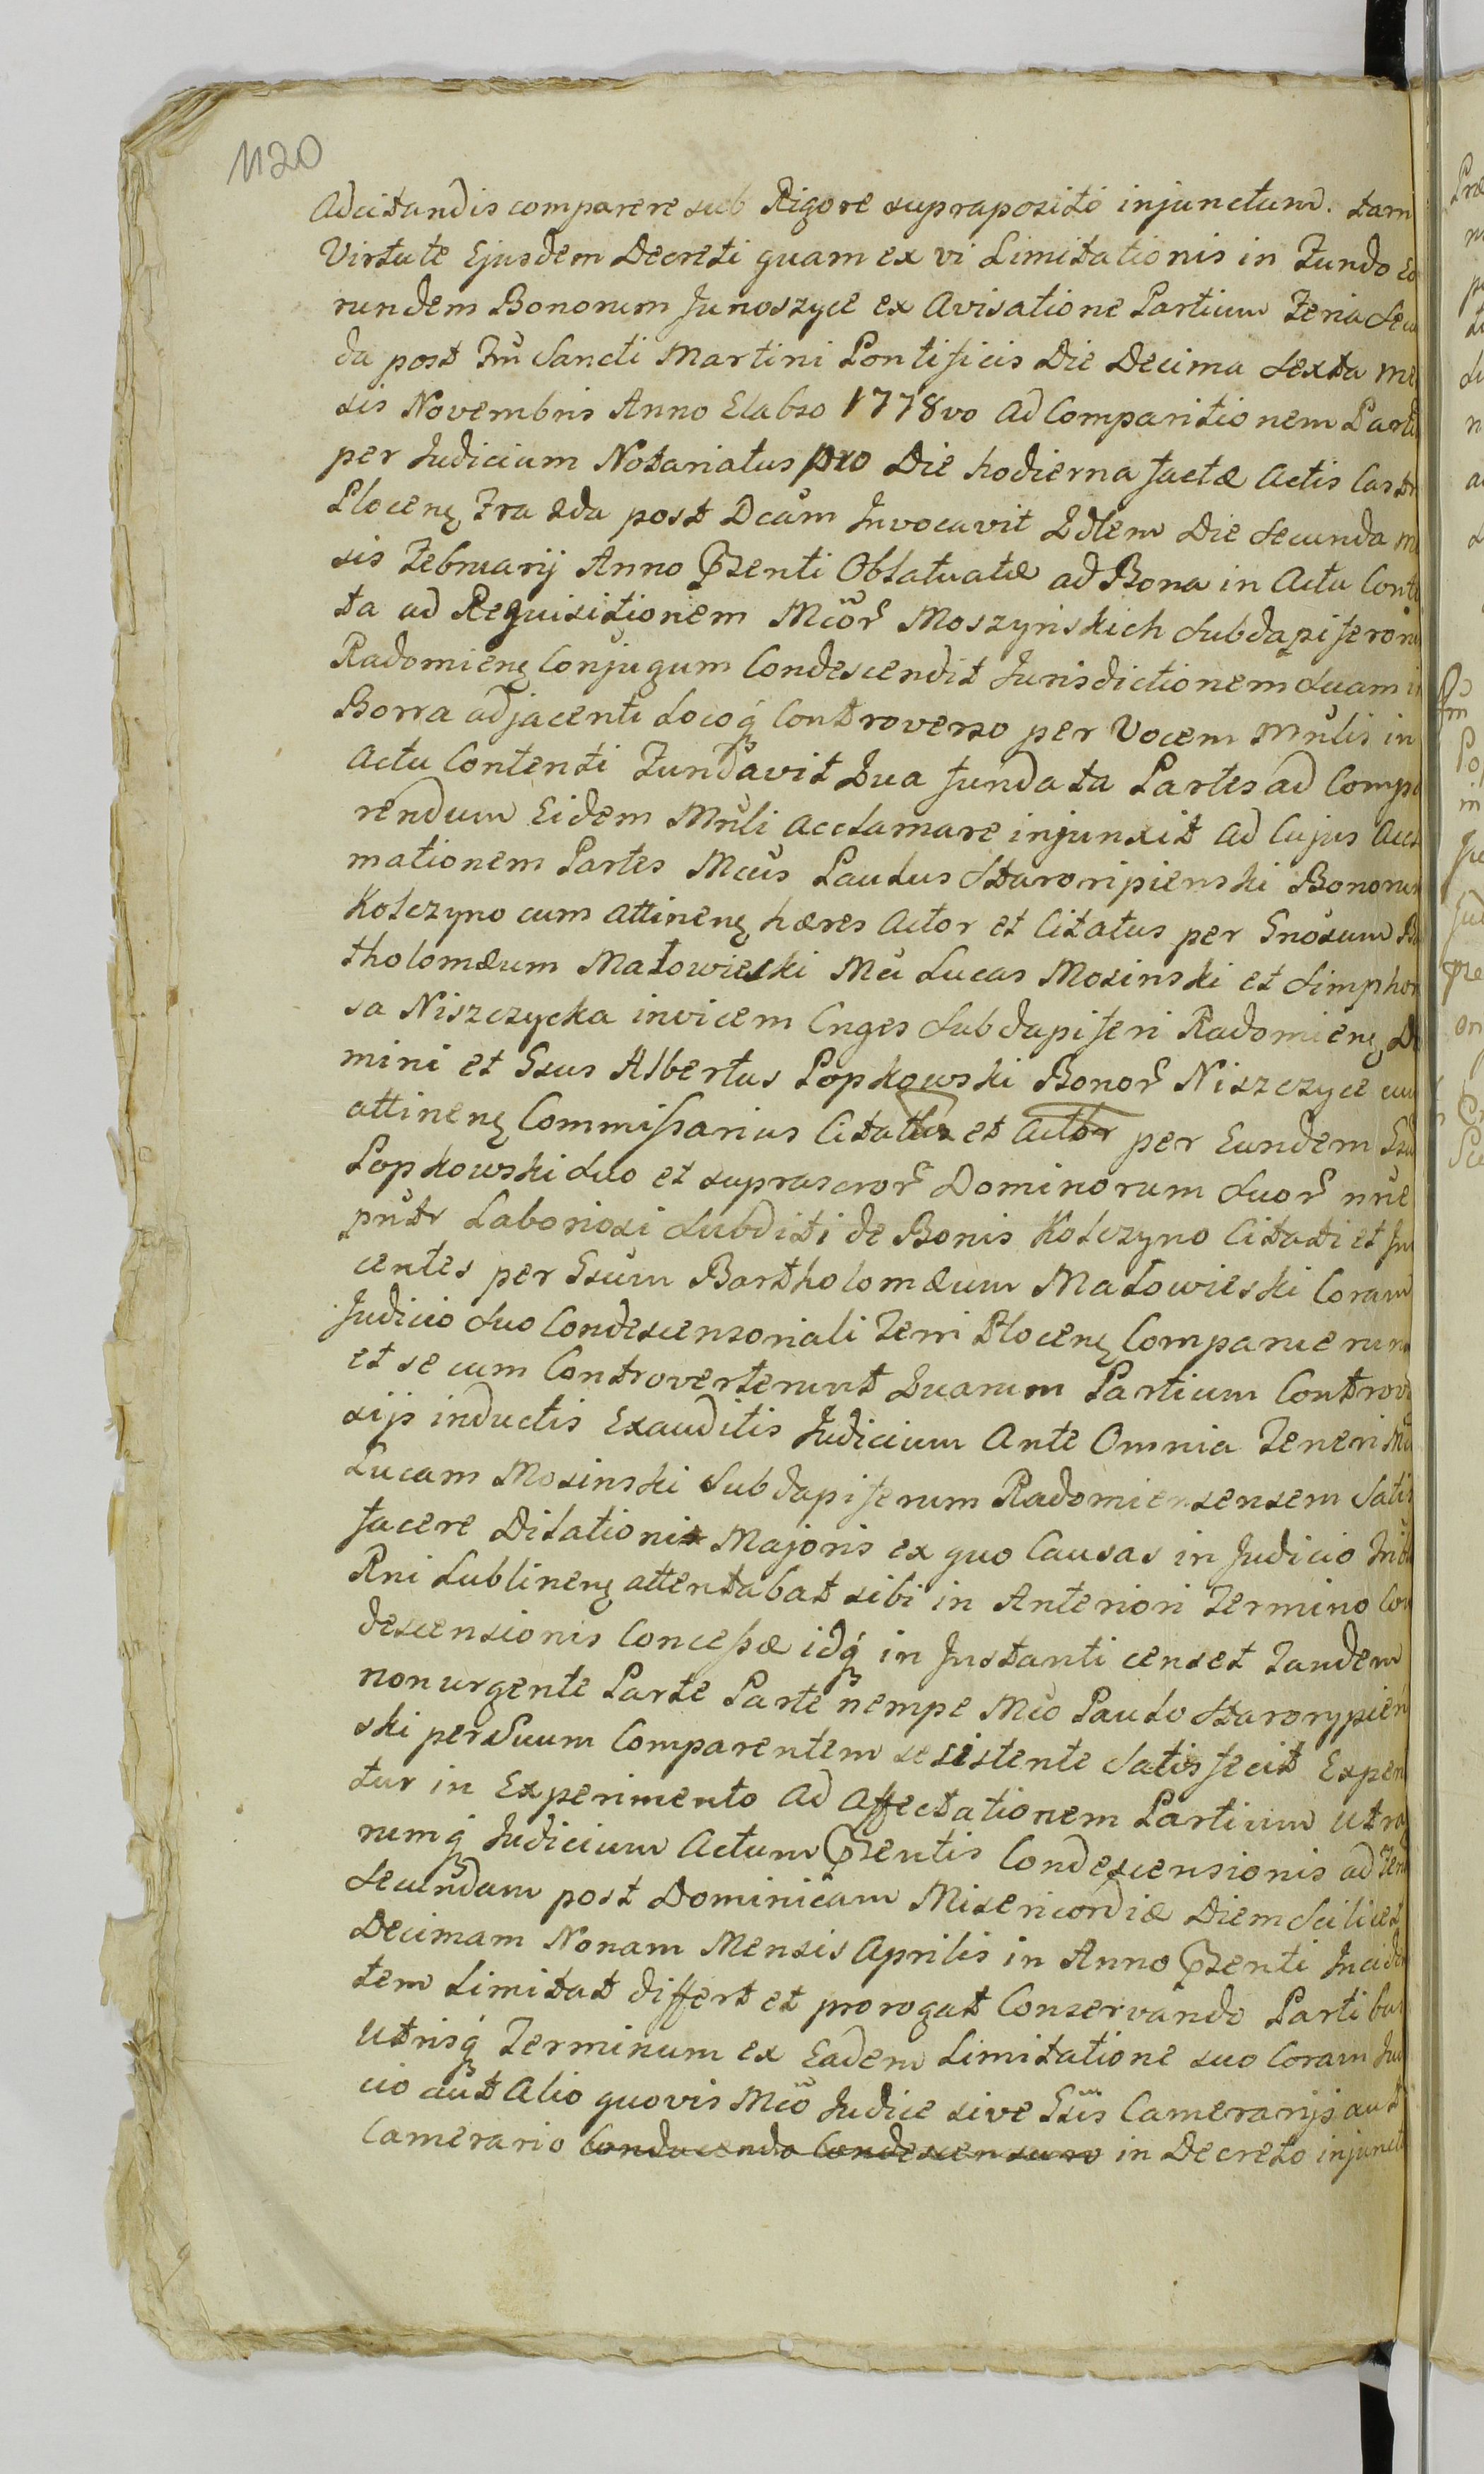 1120
Adcitandis comparere sub Rigore supraposito injunctum. tam
Virtute Ejusdem Decreti quam ex vi Limitationis in Fundo Eo
rundem Bonorum Junoszyce ex Avisatione Partium Feria Secu
da post Fm Sancti Martini Pontificis Die Decima Sexta Me
sis Novembris Anno Elabso 1778vo Ad Comparitionem Parti
per Judicium Notariatus pro Die hodierna factæ Actis Castr
Plocens Fra 2da post Dcam Invocavit Qdlem Die Secunda M
sis Februarij Anno Pzenti Oblatuatæ ad Bona in Actu Conte
ta ad Requisitionem Mcor Moszynskich Subdapiferoru
Radomiens Conjugum Condescendit Jurisdictionem Suam i
Borra adjacenti Locoq Controverso per Vocem Mnlis in
Actu Contenti Fundavit Qua fundata Partes ad Compa
rendum Eidem Mnli Acclamare injunxit Ad Cujus Accla
mationem Partes Mcus Paulus Staroripienski Bonorum
Kolczyno cum Attinens hæres Actor et Citatus per Gnosum Ba
tholomæum Matowieski Mci Lucas Mosinski et Simphor
sa Niszczycka invicem Cnges Subdapiferi Radomiens Do
mini et Gsus Albertus Popkowski Bonor Niszczyce cum
attinens Commissarius Citatus et Actor per Eundem Gsu
Popkowski Suo et suprascror Dominorum Suor nne
pntr Laboriosi Subditi de Bonis Kolczyno Citati et Ju
centes per Gsum Bartholomæum Matowieski Coram
Judicio Suo Condescensoriali Terri Plocens Comparuerun
et se cum Controverterunt Quarum Partium Controve
sijs inductis Exauditis Judicium Ante Omnia Teneri M
Lucam Mosinski Subdapiferum Radomiensensem Satis
facere Dilationi Majoris ex quo Causas in Judicio Trib
Rni Lublinens attentabat sibi in Anteriori Termino Con
descensionis Concessæ idq in Instanti censet Tandem
non urgente Parte Parte nempe Mco Paulo Starorypien
ski per Suum Comparentem se sistente Satis fecit Experi
tur in Experimento Ad Affectationem Partium Utra
rumq Judicium Actum Pzentis Condescensionis ad Feri
Secundam post Dominicam Misericordiæ Diem Scilicet
Decimam Nonam Mensis Aprilis in Anno Pzenti Inciden
tem Limitat differt et prorogat Conservando Partibus
Utrisq Terminum ex Eadem Limitatione suo Coram Judi
cio aut Alio quovis Mco Judice sive Gsis Camerarijs aut
Camerario Conducendo Condescensuro in Decreto injunct